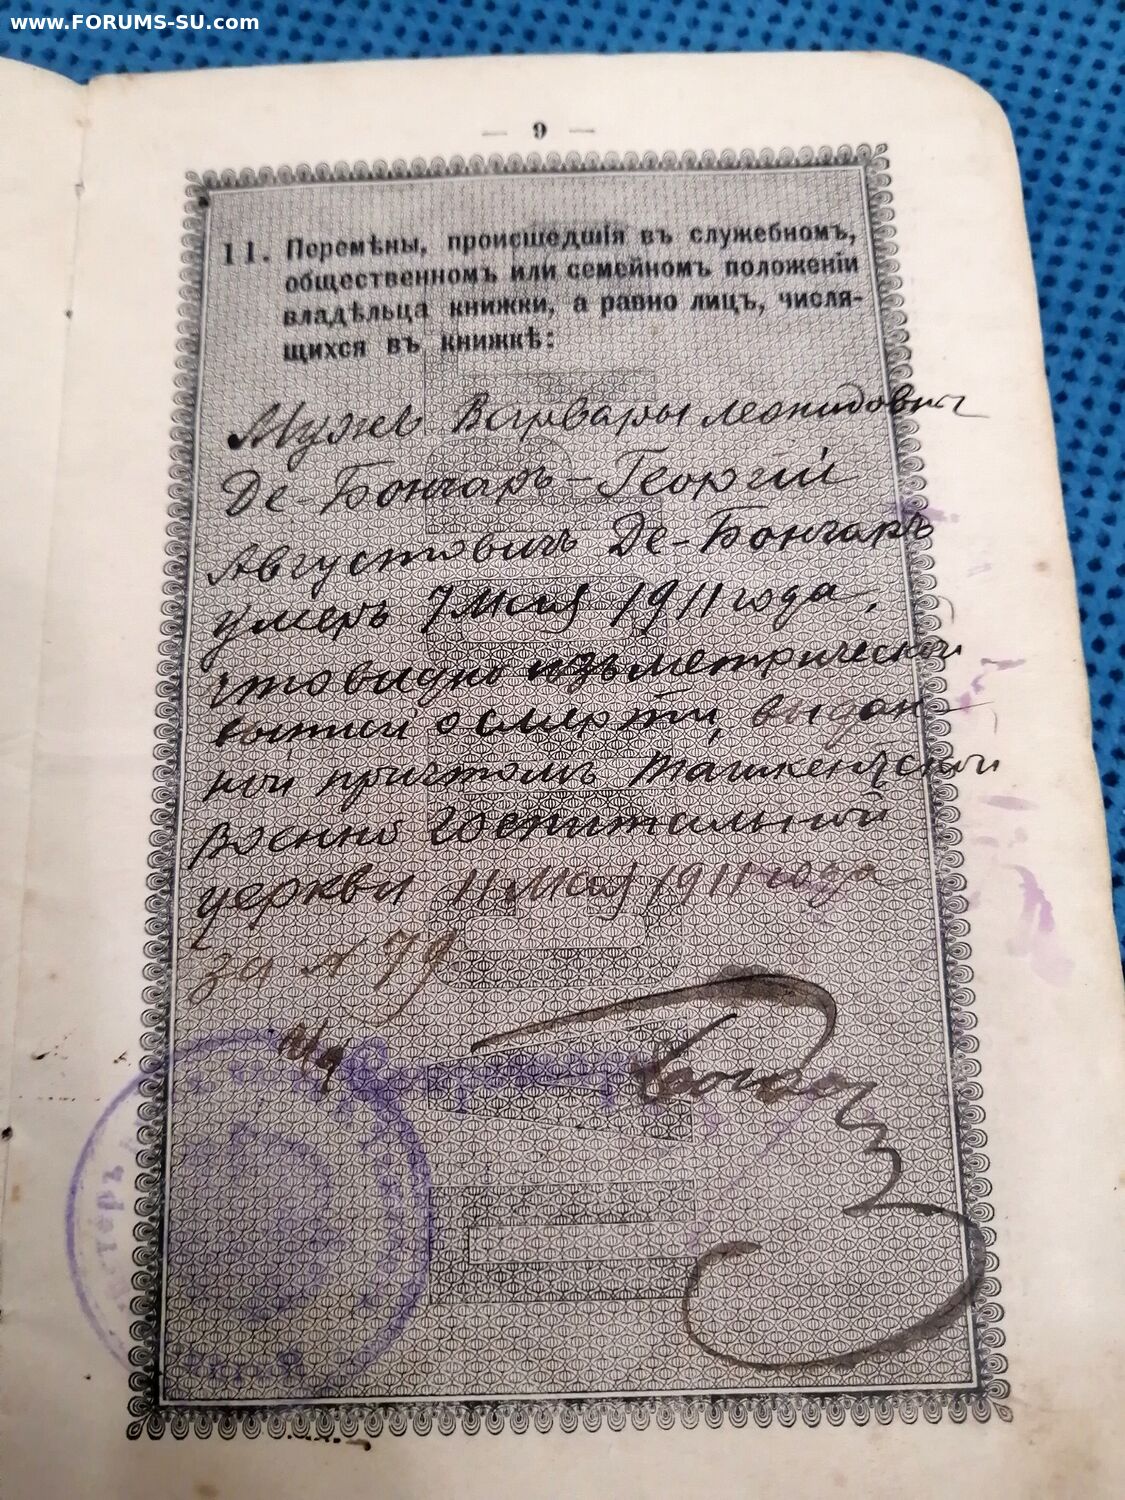 www.FORUMS-SU.com
— 9 —
11. Перемѣны, происшедшія въ служебномъ,
общественномъ или семейномъ положеніи
владѣльца книжки, а равно лицъ, числя-
щихся въ книжкѣ:
Мужъ Варвары Леонидовны
Де-Бонгаръ-Георгій
Августовичъ Де-Бонгаръ
умеръ 7 Мая 1911 года,
что видно изъ метрической
выписи о смерти, выдан-
ной причтомъ Ташкентской
военно госпитальной
церкви 11 Мая 1911 года
за № 79